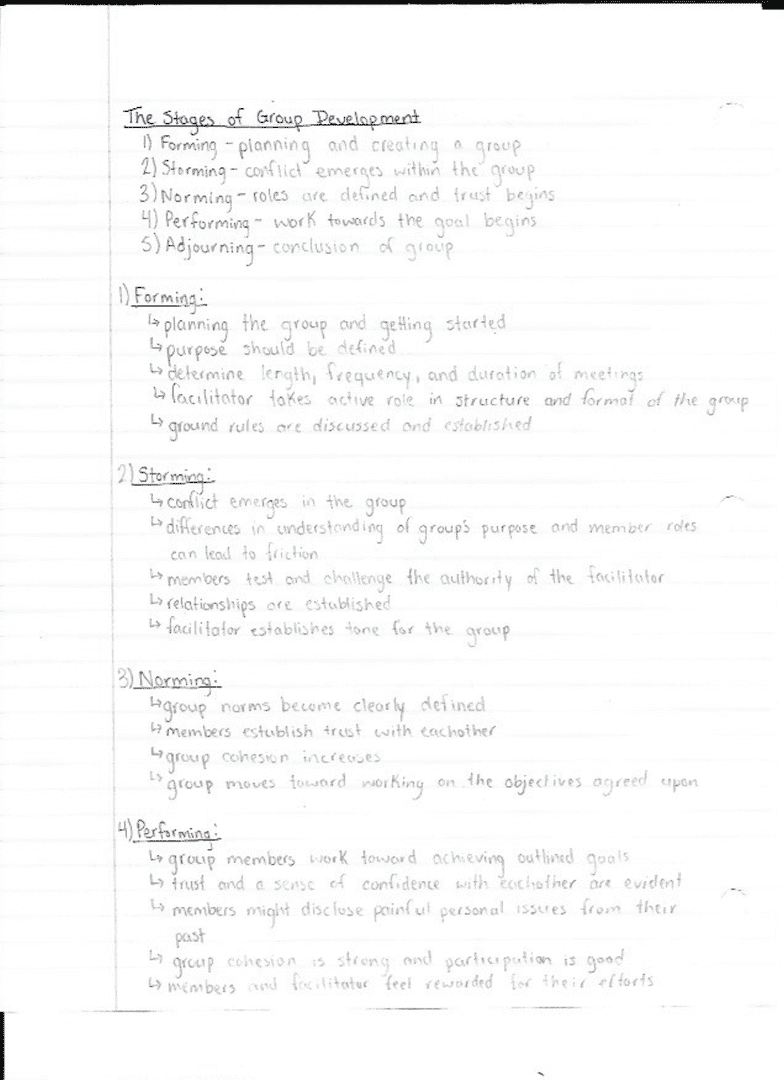 The Stages of Group Development
1) Forming - planning and creating a group
2) Storming - conflict emerges within the group
3) Norming - roles are defined and trust begins
4) Performing - work towards the goal begins
5) Adjourning - conclusion of group
1) Forming:
↳ planning the group and getting started
↳ purpose should be defined
↳ determine length, frequency, and duration of meetings
↳ facilitator takes active role in structure and format of the group
↳ ground rules are discussed and established
2) Storming:
↳ conflict emerges in the group
↳ differences in understanding of group's purpose and member roles
can lead to friction
↳ members test and challenge the authority of the facilitator
↳ relationships are established
↳ facilitator establishes tone for the group
3) Norming:
↳ group norms become clearly defined
↳ members establish trust with eachother
↳ group cohesion increases
↳ group moves toward working on the objectives agreed upon
4) Performing:
↳ group members work toward achieving outlined goals
↳ trust and a sense of confidence with eachother are evident
↳ members might disclose painful personal issues from their
past
↳ group cohesion is strong and participation is good
↳ members and facilitator feel rewarded for their efforts